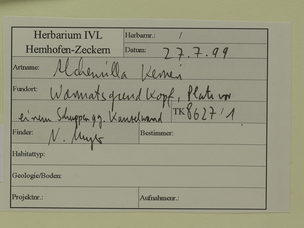 Herbarium IVL
Hemhofen-Zeckern
Herbarnr.: /
Datum: 27.7.99
Artname: Alchemilla Kerneri
Fundort: Warmatsgrund Kopf, Platz vor
einem Schuppen gg. Kanzelwand TK 8627/1
Finder: N. Meyer Bestimmer:
Habitattyp:
Geologie/Boden:
Projektnr.: Aufnahmenr.: